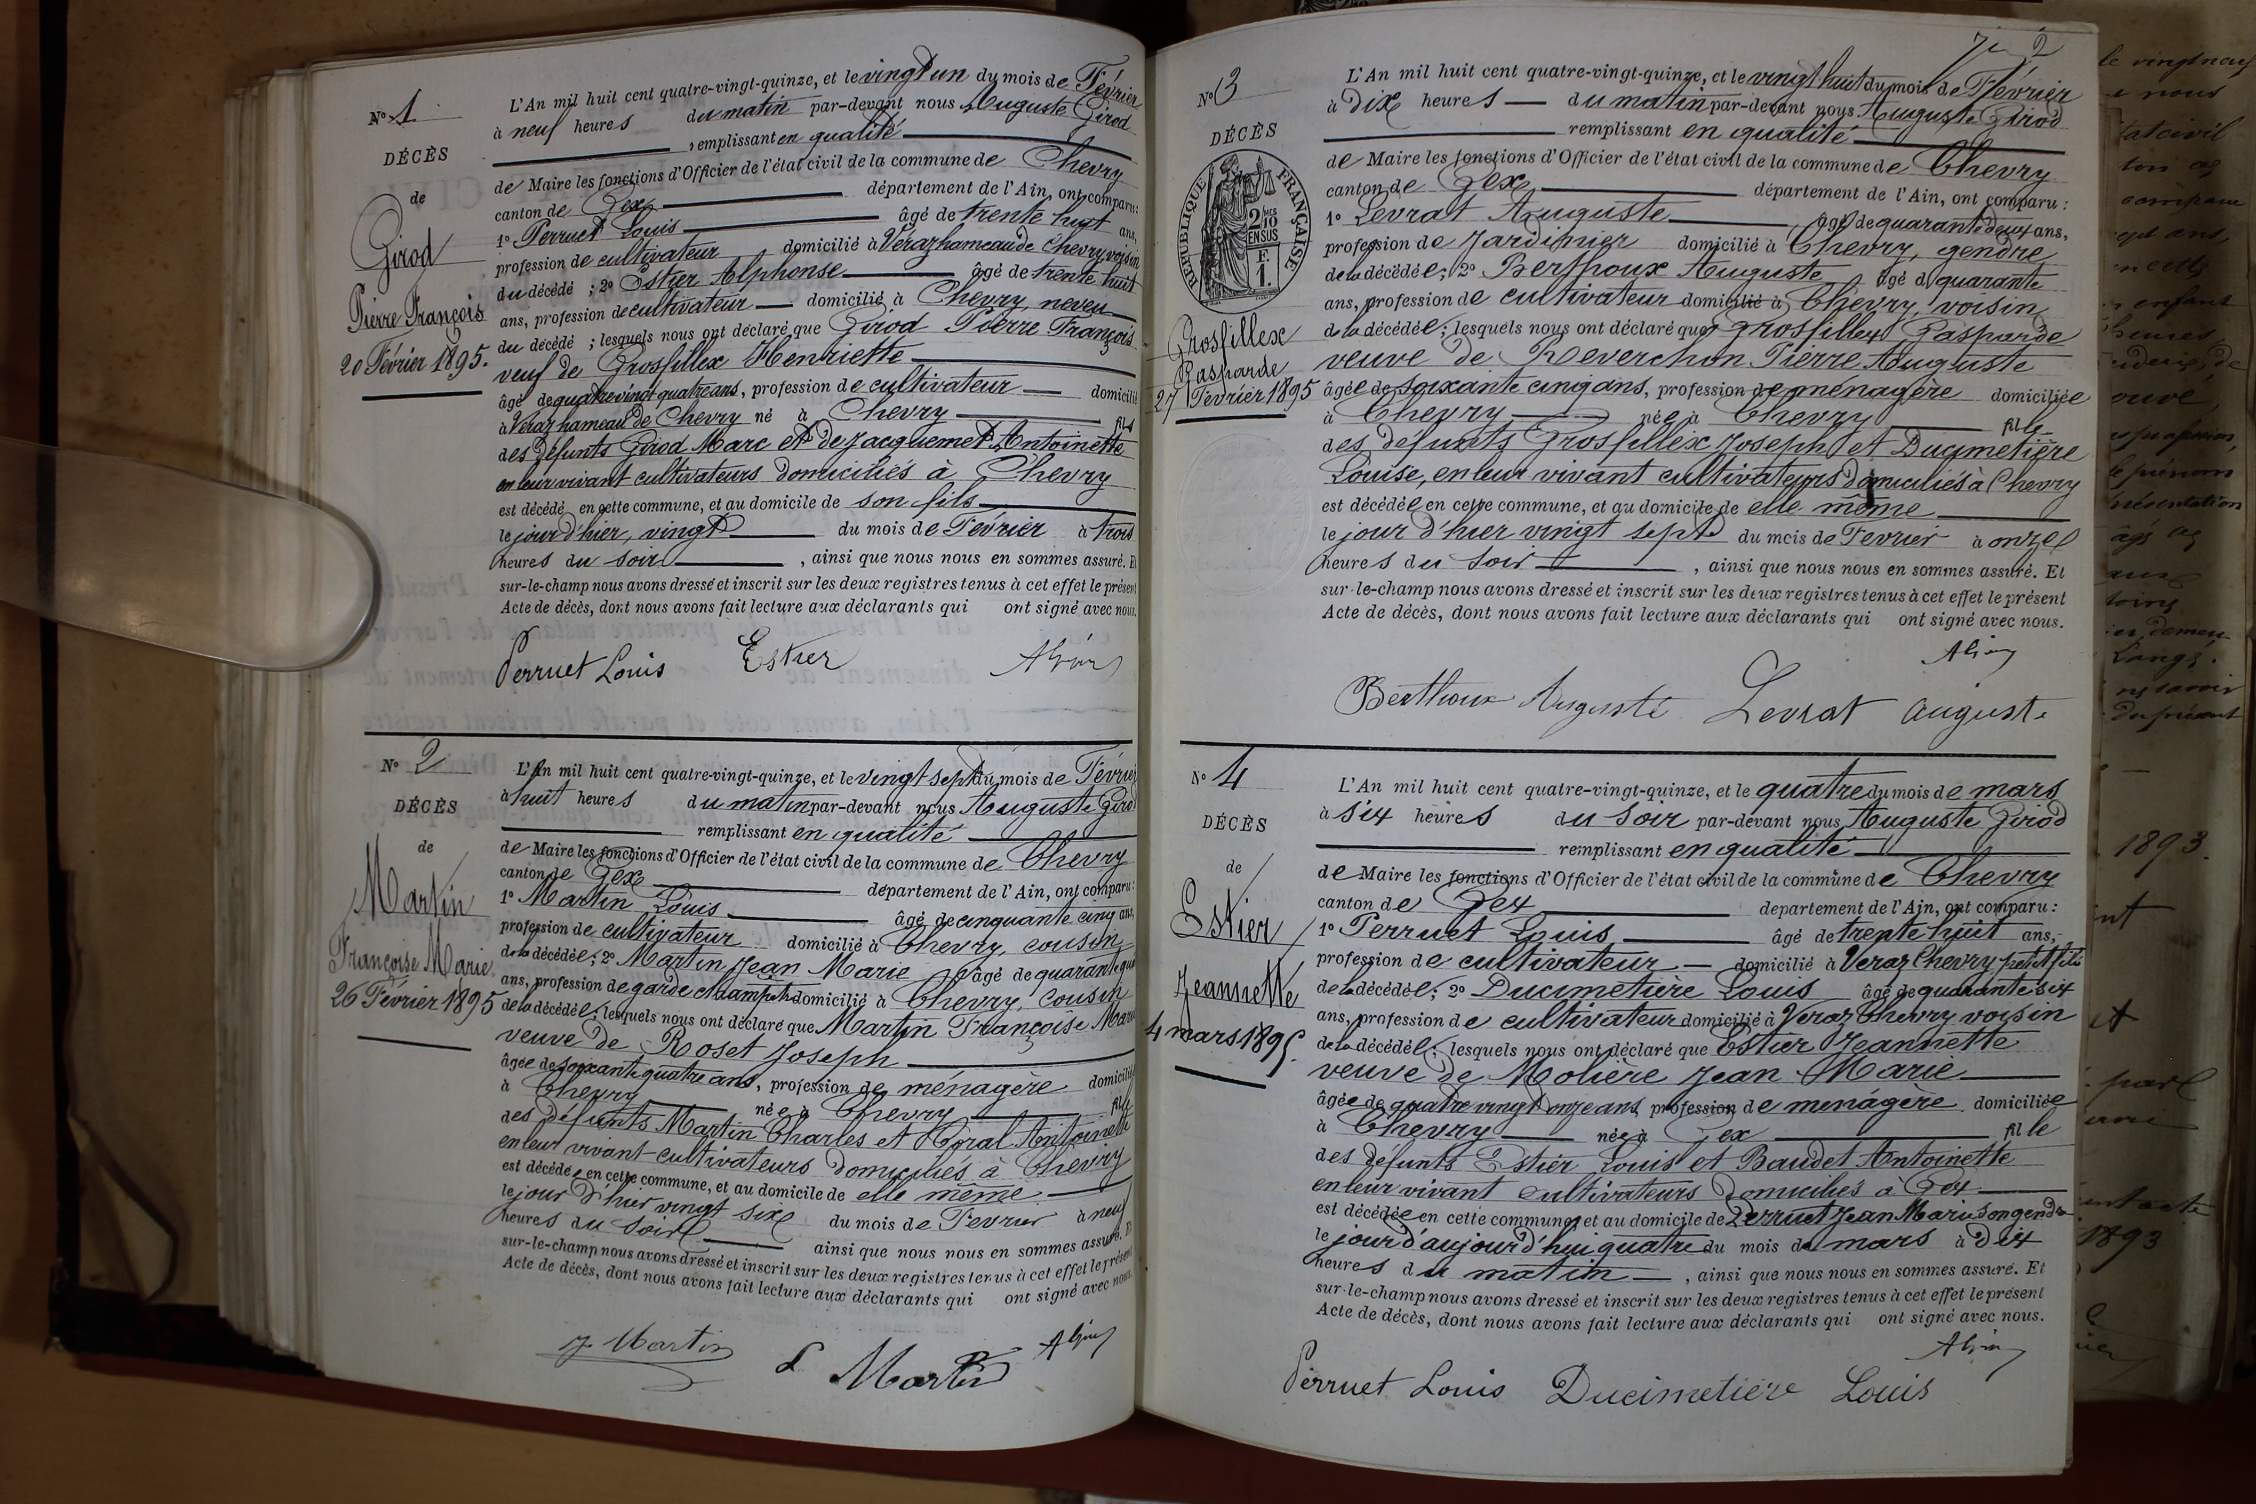 N° 1
DÉCÈS
de
Girod
Pierre François
20 Février 1895.
L'An mil huit cent quatre-vingt-quinze, et le vingt un du mois de Février
à neuf heures du matin par-devant nous Auguste Girod
remplissant en qualité
de Maire les fonctions d'Officier de l'état civil de la commune de Chevry
canton de Gex département de l'Ain, ont comparu :
1° Perruet Louis âgé de trente huit ans,
profession de cultivateur domicilié à Veraz hameau de Chevry, voisin
du décédé ; 2° Estier Alphonse âgé de trente huit
ans, profession de cultivateur domicilié à Chevry, neveu
du décédé ; lesquels nous ont déclaré que Girod Pierre François
veuf de Grosfillex Henriette
âgé de quatre vingt quatre ans, profession de cultivateur domicilié
à Veraz hameau de Chevry né à Chevry fils
des défunts Girod Marc et de Jacquemet Antoinette
en leur vivant cultivateurs domiciliés à Chevry
est décédé en cette commune, et au domicile de son fils
le jour d'hier, vingt du mois de Février à trois
heures du soir , ainsi que nous nous en sommes assuré. Et
sur-le-champ nous avons dressé et inscrit sur les deux registres tenus à cet effet le présent
Acte de décès, dont nous avons fait lecture aux déclarants qui ont signé avec nous.
Perruet Louis Estier AGirod
N° 2
DÉCÈS
de
Martin
Françoise Marie
26 Février 1895
L'An mil huit cent quatre-vingt-quinze, et le vingt sept du mois de Février
à huit heures du matin par-devant nous Auguste Girod
remplissant en qualité
de Maire les fonctions d'Officier de l'état civil de la commune de Chevry
canton de Gex département de l'Ain, ont comparu :
1° Martin Louis âgé de cinquante cinq ans,
profession de cultivateur domicilié à Chevry, cousin
de la décédée ; 2° Martin Jean Marie âgé de quarante
ans, profession de garde champêtre domicilié à Chevry, cousin
de la décédée ; lesquels nous ont déclaré que Martin Françoise Marie
veuve de Roset Joseph
âgée de soixante quatre ans, profession de ménagère domiciliée
à Chevry née à Chevry fille
des défunts Martin Charles et Antoinette
en leur vivant cultivateurs domiciliés à Chevry
est décédée en cette commune, et au domicile de elle même
le jour d'hier vingt six du mois de Février à neuf
heures du soir ainsi que nous nous en sommes assuré. Et
sur-le-champ nous avons dressé et inscrit sur les deux registres tenus à cet effet le présent
Acte de décès, dont nous avons fait lecture aux déclarants qui ont signé avec nous.
J Martin L Martin AGirod
2
N° 3
DÉCÈS
RÉPUBLIQUE FRANÇAISE
2/10 EN SUS
F. 1.
Grosfillex
Gasparde
27 Février 1895
L'An mil huit cent quatre-vingt-quinze, et le vingt huit du mois de Février
à dix heures du matin par-devant nous Auguste Girod
remplissant en qualité
de Maire les fonctions d'Officier de l'état civil de la commune de Chevry
canton de Gex département de l'Ain, ont comparu :
1° Levrat Auguste âgé de quarante deux ans,
profession de Jardinier domicilié à Chevry, gendre
de la décédée ; 2° Berthoux Auguste âgé de quarante
ans, profession de cultivateur domicilié à Chevry, voisin
de la décédée ; lesquels nous ont déclaré que Grosfillex Gasparde
veuve de Reverchon Pierre Auguste
âgée de soixante cinq ans, profession de ménagère domiciliée
à Chevry née à Chevry fille
des défunts Grosfillex Joseph et Ducimetière
Louise, en leur vivant cultivateurs domiciliés à Chevry
est décédée en cette commune, et au domicile de elle même
le jour d'hier vingt sept du mois de Fevrier à onze
heures du soir , ainsi que nous nous en sommes assuré. Et
sur-le-champ nous avons dressé et inscrit sur les deux registres tenus à cet effet le présent
Acte de décès, dont nous avons fait lecture aux déclarants qui ont signé avec nous.
AGirod
Berthoux Auguste Levrat auguste
N° 4
DÉCÈS
de
Estier
Jeannette
4 mars 1895.
L'An mil huit cent quatre-vingt-quinze, et le quatre du mois de mars
à six heures du soir par-devant nous Auguste Girod
remplissant en qualité
de Maire les fonctions d'Officier de l'état civil de la commune de Chevry
canton de Gex département de l'Ain, ont comparu :
1° Perruet Louis âgé de trente huit ans,
profession de cultivateur domicilié à Veraz Chevry petit fils
de la décédée ; 2° Ducimetière Louis âgé de quarante six
ans, profession de cultivateur domicilié à Veraz Chevry voisin
de la décédée ; lesquels nous ont déclaré que Estier Jeannette
veuve de Molière Jean Marie
âgée de quatre vingt onze ans profession de ménagère domiciliée
à Chevry née à Gex fille
des defunts Estier Louis et Baudet Antoinette
en leur vivant cultivateurs domiciliés à Gex
est décédée en cette commune et au domicile de Perruet Jean Marie son gendre
le jour d'aujourd'hui quatre du mois de mars à dix
heures du matin , ainsi que nous nous en sommes assuré. Et
sur-le-champ nous avons dressé et inscrit sur les deux registres tenus à cet effet le présent
Acte de décès, dont nous avons fait lecture aux déclarants qui ont signé avec nous.
AGirod
Perruet Louis Ducimetière Louis
le vingt neuf
nous
1893.
1893